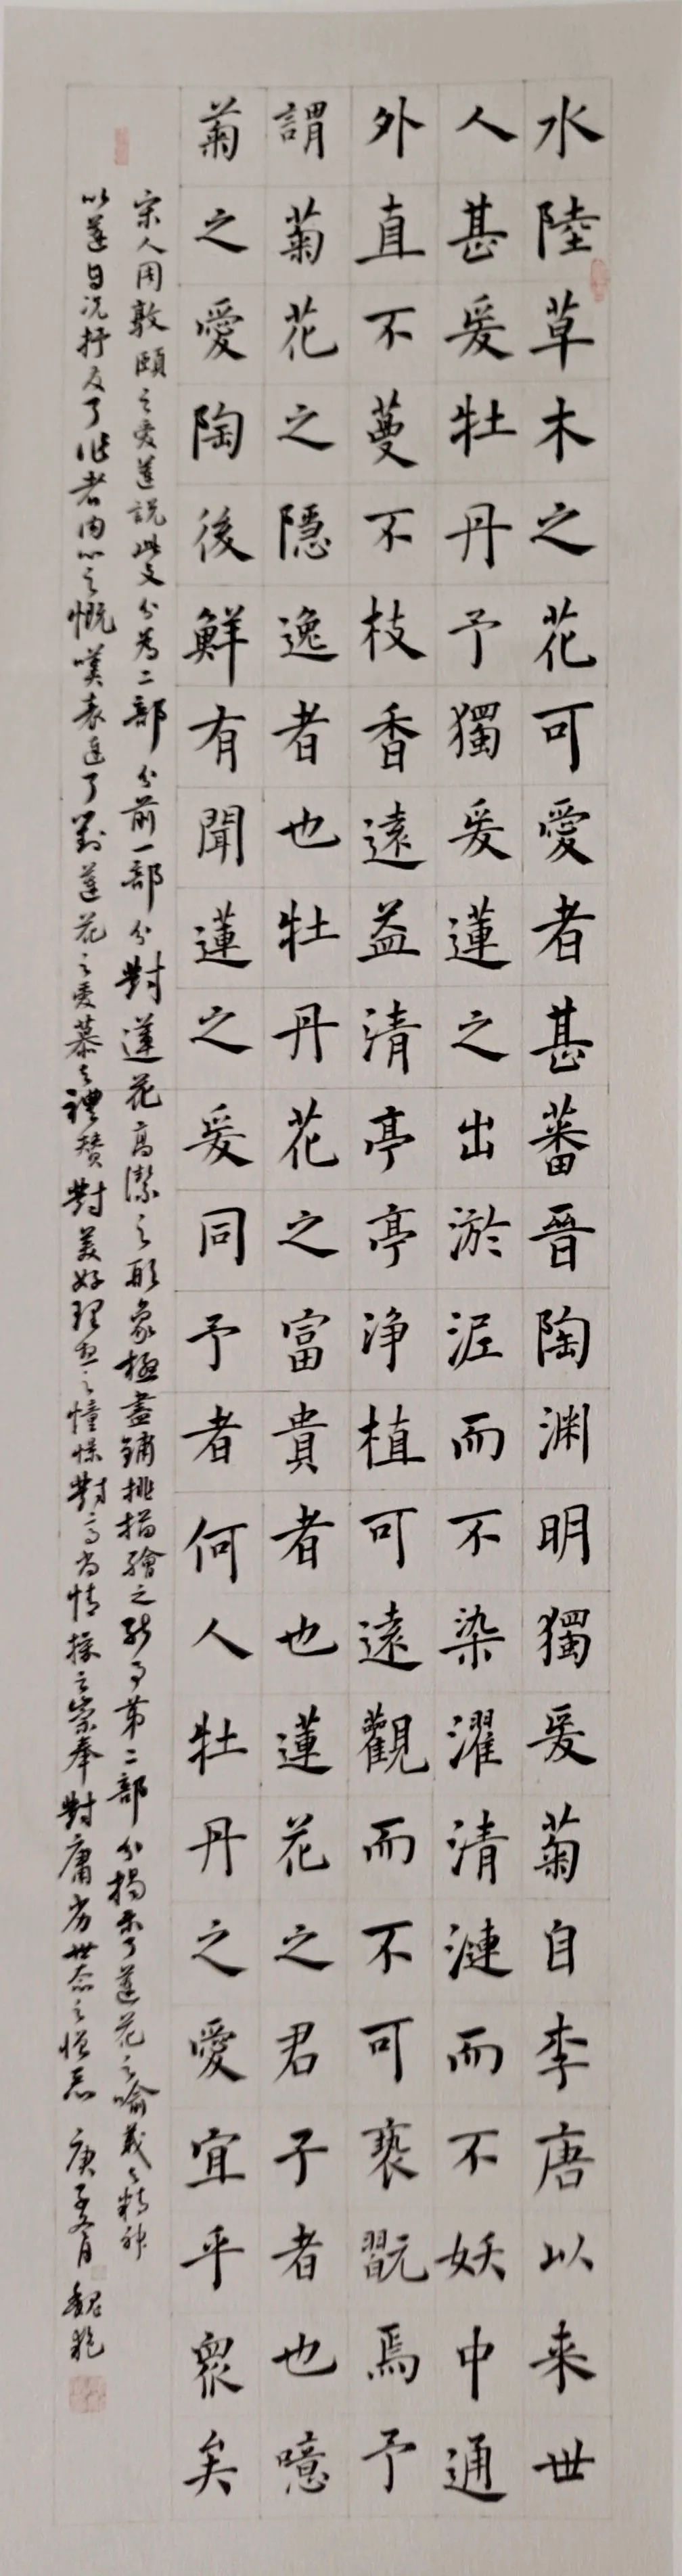 水陸草木之花可愛者甚蕃晉陶渊明獨爰菊自李唐以来世
人甚爰牡丹予獨爰蓮之出淤泥而不染濯清漣而不妖中通
外直不蔓不枝香遠益清亭亭浄植可遠觀而不可褻翫焉予
謂菊花之隱逸者也牡丹花之富貴者也蓮花之君子者也噫
菊之愛陶後鮮有聞蓮之爰同予者何人牡丹之愛宜乎衆矣
宋人周敦頤之爱蓮説此文分為二部分前一部分對蓮花高潔之形象極盡鋪排描繪之能事第二部分揭示了蓮花之喻義之精神
以蓮自况抒发了作者内心之慨嘆表达了對蓮花之爱慕之禮赞對美好理想之憧憬對高尚情操之崇奉對庸劣世态之憎恶 庚子 月 魏